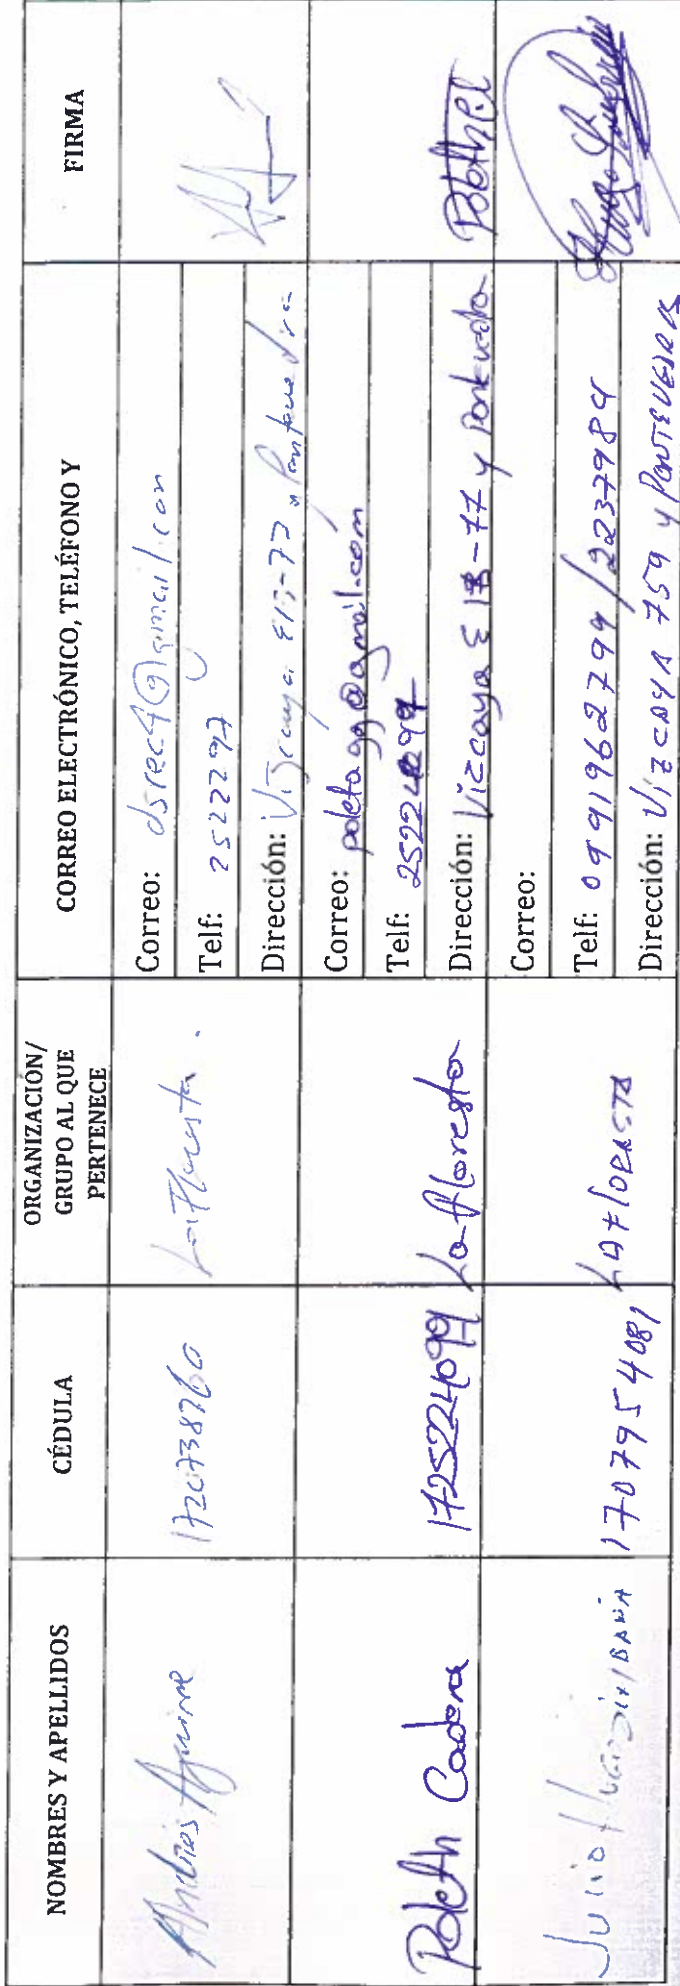 NOMBRES Y APELLIDOS
CÉDULA
ORGANIZACIÓN/
GRUPO AL QUE
PERTENECE
CORREO ELECTRÓNICO, TELÉFONO Y
FIRMA
Andrés Aguirre
1720738760
La Floresta.
Correo: dsrec4@gmail.com
Telf: 2522297
Dirección: Vizcaya E13-77 y Pontevedra
Poleth Cadena
1725224099
La floresta
Correo: poletagg@gmail.com
Telf:
Dirección: Vizcaya E 13-77 y Pontevedra
Julio Hugo
1707954081
LA FLORESTA
Correo:
Telf: 0991962799/2237984
Dirección: VIZCAYA 759 y PONTEVEDRA